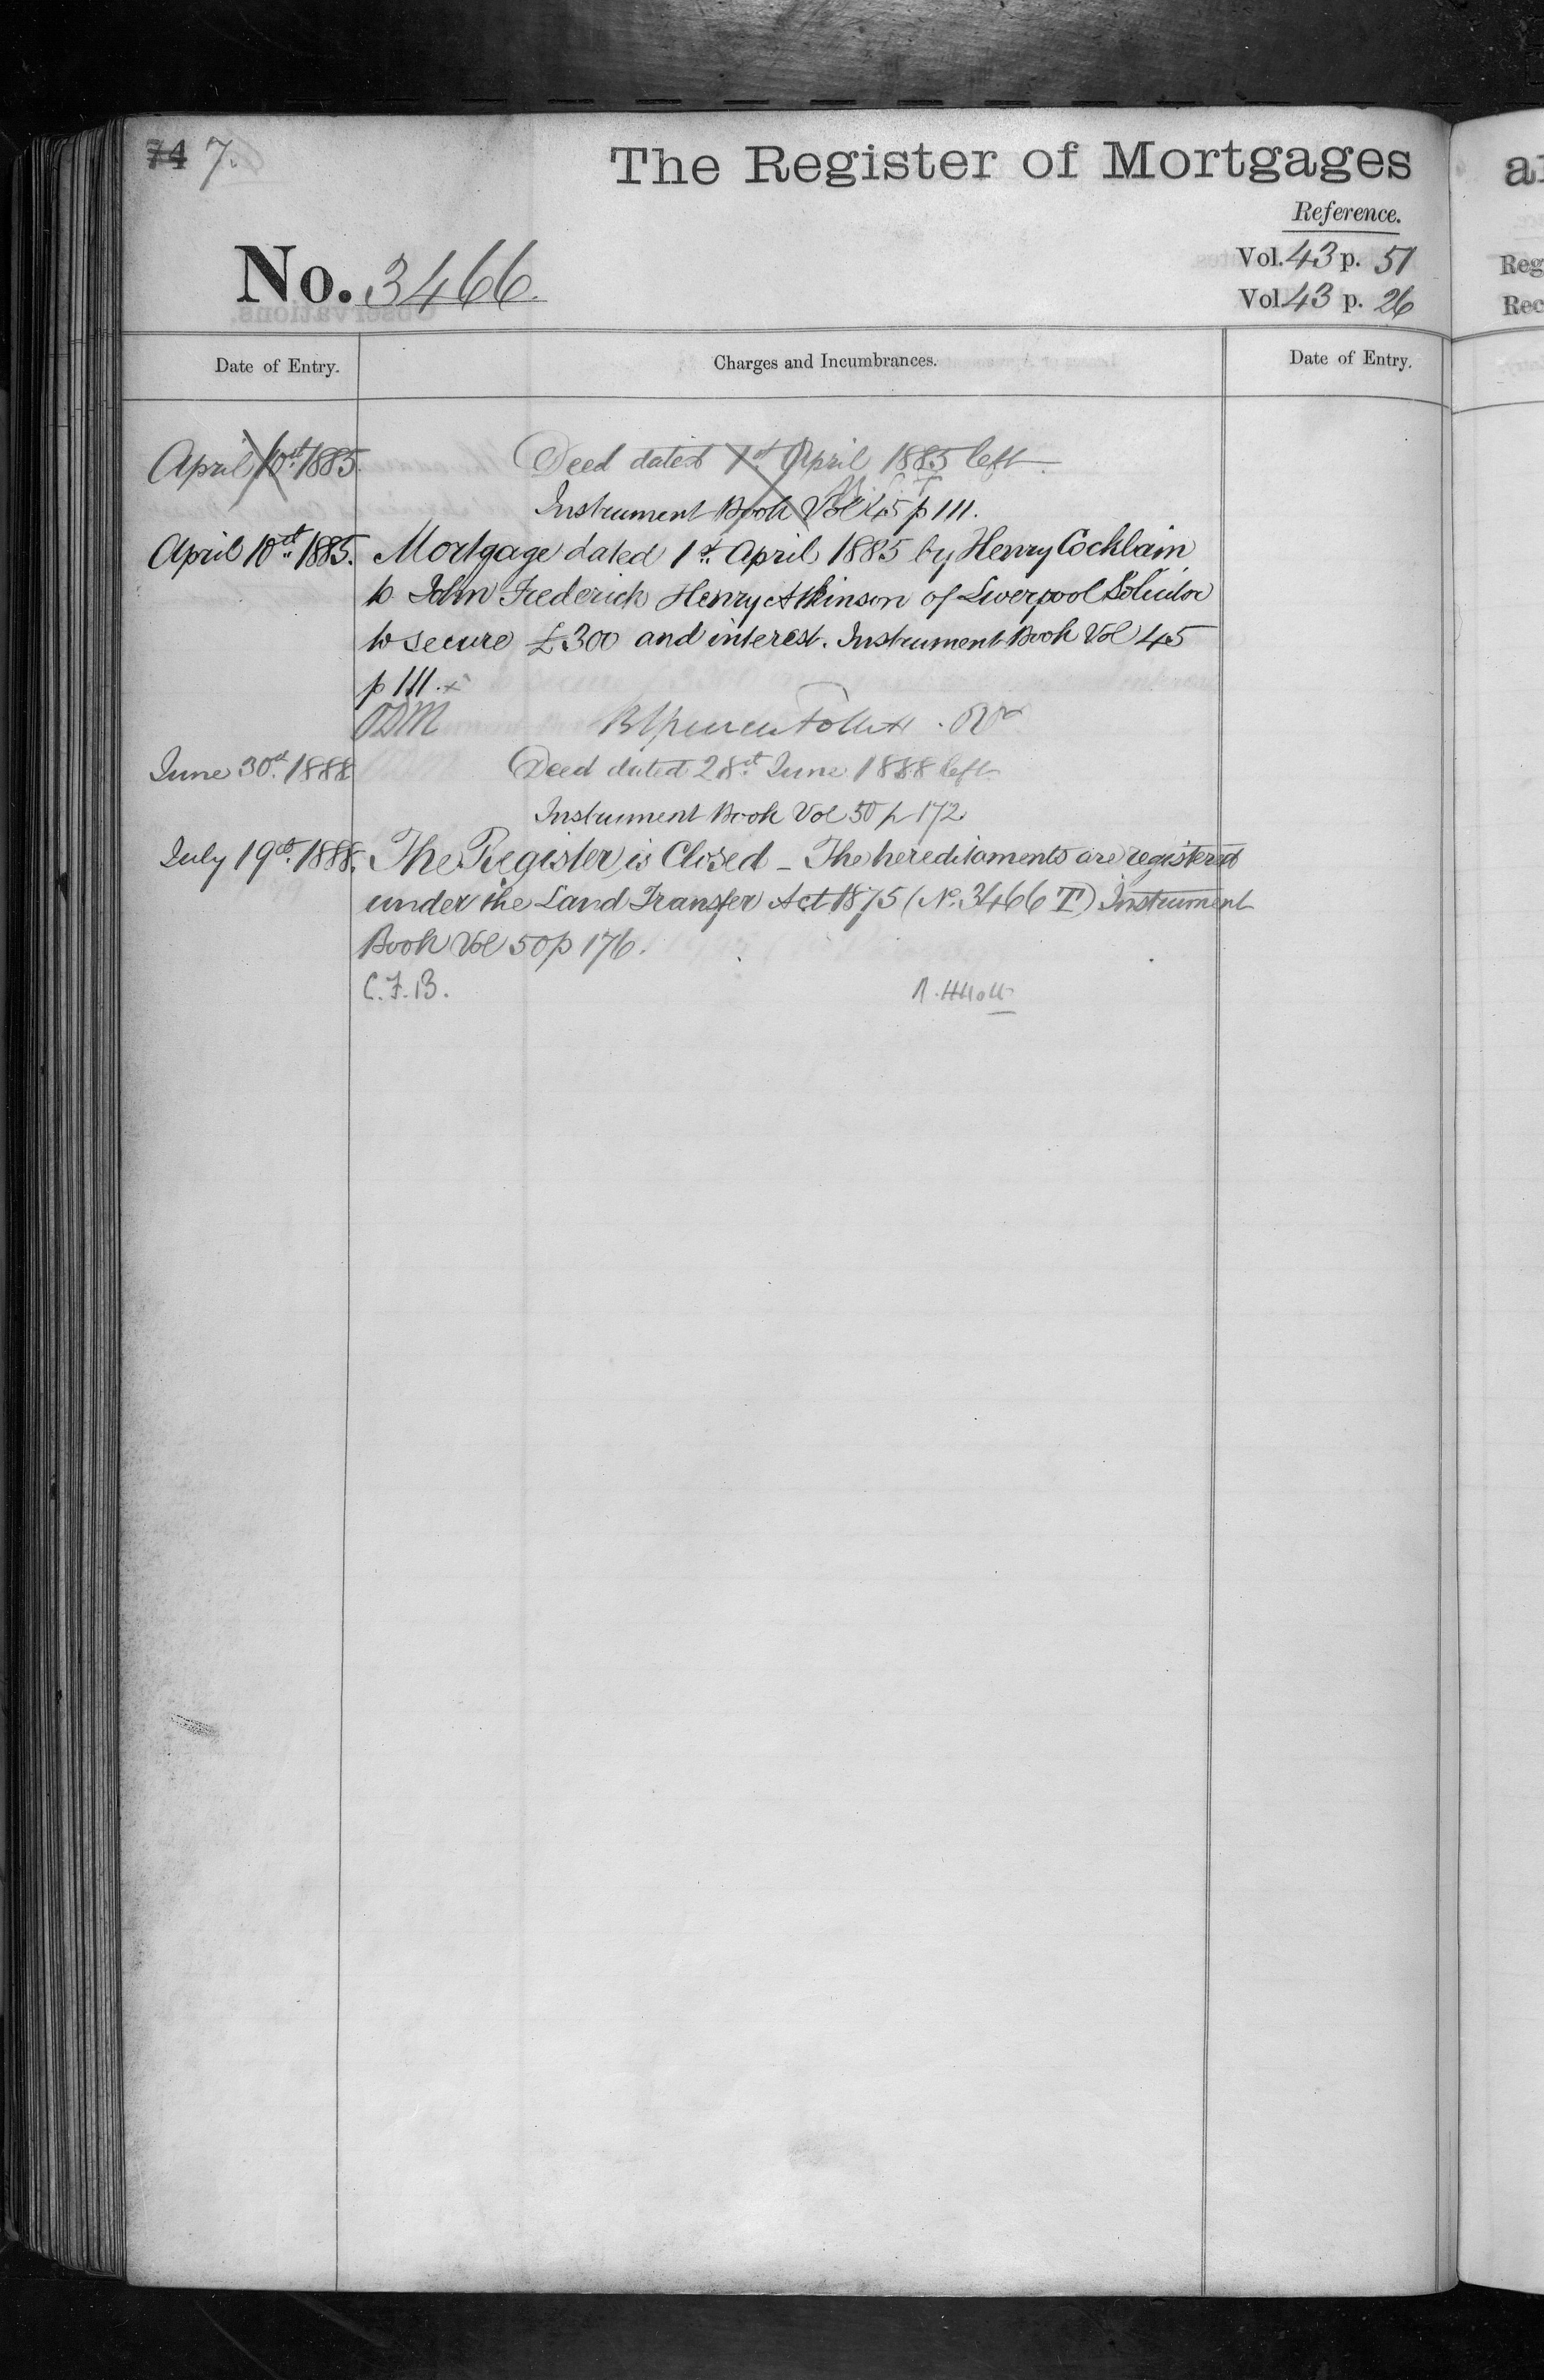 74 7.
The Register of Mortgages
Reference.
No. 3466.
Vol. 43 p. 51
Vol. 43 p. 26
Date of Entry. Charges and Incumbrances. Date of Entry.
April 10th 1885. Deed dated 1st April 1885 left
Instrument Book Vol 45 p 111.
April 10th 1885. Mortgage dated 1st April 1885 by Henry Cocklain
to John Frederick Henry Atkinson of Liverpool Solicitor
to secure £300 and interest. Instrument Book Vol 45
p 111.
June 30th 1888 Deed dated 28th June 1888 left
Instrument Book Vol 50 p 172
July 19th 1888. The Register is Closed – The hereditaments are registered
under the Land Transfer Act 1875 (No. 3466 T) Instrument
Book Vol 50 p 176.
C.F.B.
Reg
Rec